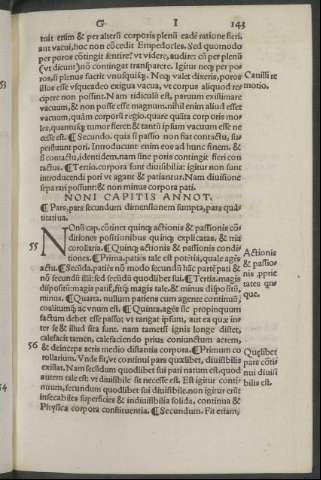 G I 143
trãt etiam & per alterũ corporis plenũ eadẽ ratione fieri.
aut vacui, hoc non cõcedit Empedocles. Sed quomodo
per poros cõtingit sentire? vt videre, audire: cũ per plenũ
(vt dicunt) nõ contingat transparere. Igitur neq; per po-
ros, si plenus fuerit vnusquisq;. Neq; valet dixeris, poros
illos esse vsqueadeo exigua vacua, vt corpus aliquod re-
cipere non possint. Nam ridiculũ est, paruum existimare
vacuum, & non posse esse magnum. nihil enim aliud esset
vacuum, quàm corporis regio. quare quãta corporis mo-
les, quantusq; tumor fieret: & tantũ ipsum vacuum esse ne
cesse est. ¶ Secundo. quia si passio non fiat contactu, su-
perfluunt pori. Introducunt enim eos ad hunc finem. &
si contactu, identidem. nam sine poris contingit fieri con
tactus. ¶ Tertio. corpora sunt diuisibilia: igitur non sunt
introducendi pori vt agant & patiantur. Nam diuisione
separari possunt: & non minus corpora pati.
Cauilli re
motio.
53
NONI CAPITIS ANNOT.
¶ Pars, pars secundum dimensionem sumpta, pars quã-
titatiua.
55
NOni cap. cõtinet quinq; actionis & passionis cõ-
ditiones positionibus quinq; explicatas, & tria
corollaria. ¶ Quinq; actionis & passionis condi-
tiones. ¶ Prima. patiẽs tale est potẽtia, quale agẽs
actu. ¶ Secũda. patiẽs nõ modo secundũ hãc partẽ pati &
nõ secundũ illã: sed secũdũ quodlibet sui. ¶ Tertia. magis
dispositũ: magis patiẽ, sitq; magis tale. & minus dispositũ,
minus. ¶ Quarta. nullum patiens cum agente continuũ,
coalitumq; ac vnum est. ¶ Quinta. agẽs sic propinquum
factum debet esse passo: vt tangat ipsum, aut ea quæ in-
ter se & illud sita sunt. nam tametsi ignis longe distet,
calefacit tamen, calefaciendo prius coniunctum aerem,
& deinceps aeris medio distantia corpora. ¶ Primum co
rollarium. Vnde fit, vt continui pars quælibet, diuisibilis
existat. Nam secũdum quodlibet sui pati natum est. quod
autem tale est vt diuisibile sit necesse est. Est igitur conti-
nuum, secundum quodlibet sui diuisibile. non igitur erũt
insecabiles superficies & indiuisibilia solida, continua &
Physica corpora constituentia. ¶ Secundum. Fit etiam,
Actionis
& passio-
nis pprie
tates quin
que.
56
Quęlibet
pars cõti
nui diuisi
bilis est.
54